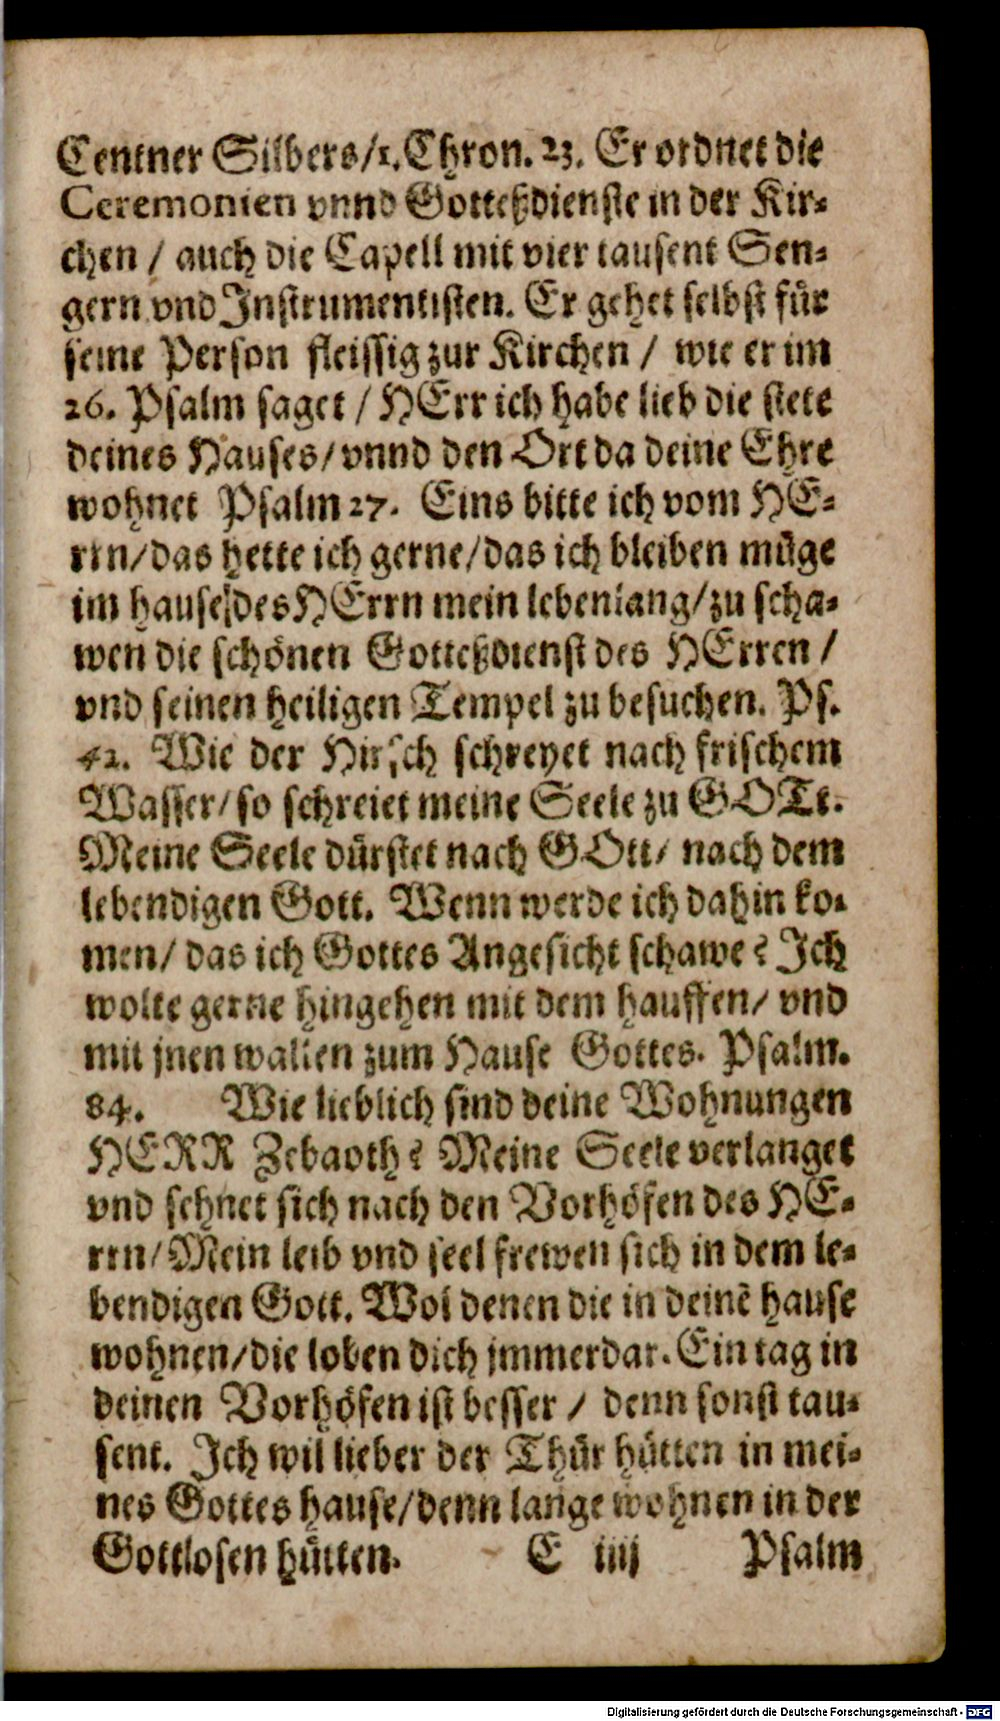 Centner Silbers/1. Chron. 23. Er ordnet die
Ceremonien vnnd Gotteßdienste in der Kir-
chen / auch die Capell mit vier tausent Sen-
gern vnd Instrumentisten. Er gehet selbst für
seine Person fleissig zur Kirchen / wie er im
26. Psalm saget / HErr ich habe lieb die stete
deines Hauses/ vnnd den Ort da deine Ehre
wohnet Psalm 27. Eins bitte ich vom HE-
rrn/das hette ich gerne/das ich bleiben müge
im hause des HErrn mein lebenlang/zu scha-
wen die schönen Gotteßdienst des HErren /
vnd seinen heiligen Tempel zu besuchen. Ps.
42. Wie der Hirsch schreyet nach frischem
Wasser/ so schreiet meine Seele zu GOTt.
Meine Seele dürstet nach GOtt/ nach dem
lebendigen Gott. Wenn werde ich dahin ko-
men/ das ich Gottes Angesicht schawe? Ich
wolte gerne hingehen mit dem hauffen/ vnd
mit jnen wallen zum Hause Gottes. Psalm.
84. Wie lieblich sind deine Wohnungen
HERR Zebaoth? Meine Seele verlanget
vnd sehnet sich nach den Vorhöfen des HE-
rrn/ Mein leib vnd seel frewen sich in dem le-
bendigen Gott. Wol denen die in deinē hause
wohnen/die loben dich jmmerdar. Ein tag in
deinen Vorhöfen ist besser / denn sonst tau-
sent. Ich wil lieber der Thür hütten in mei-
nes Gottes hause/denn lange wohnen in der
Gottlosen hütten. E iiij Psalm
Digitalisierung gefördert durch die Deutsche Forschungsgemeinschaft - DFG